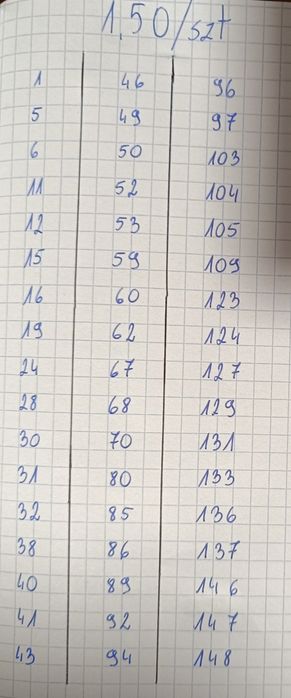 1,50/szt
1 46 96
5 49 97
6 50 103
11 52 104
12 53 105
15 59 109
16 60 123
19 62 124
24 67 127
28 68 129
30 70 131
31 80 133
32 85 136
38 86 137
40 89 146
41 92 147
43 94 148